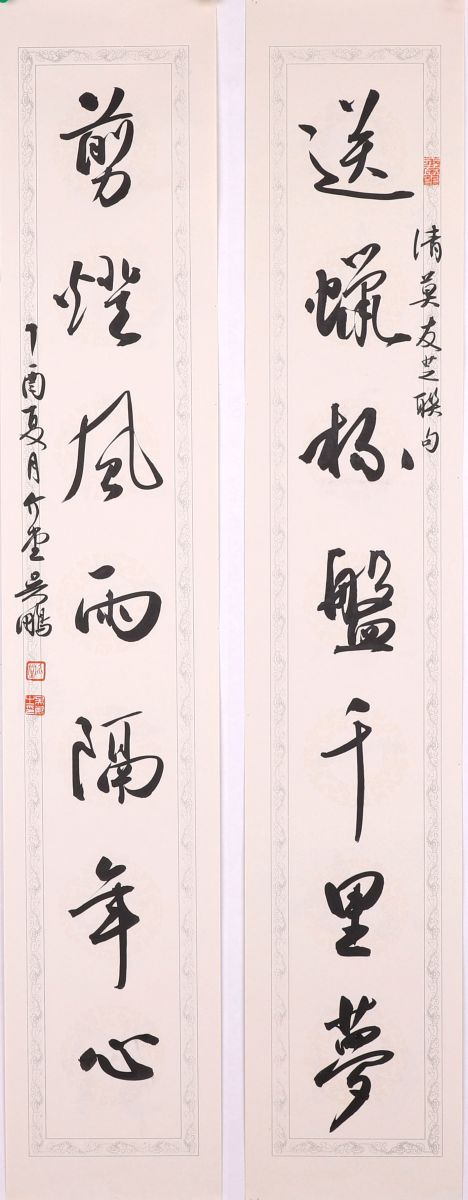 送蠟杯盤千里夢
清莫友芝聯句
剪燈風雨隔年心
丁酉夏月介堂吳鵬